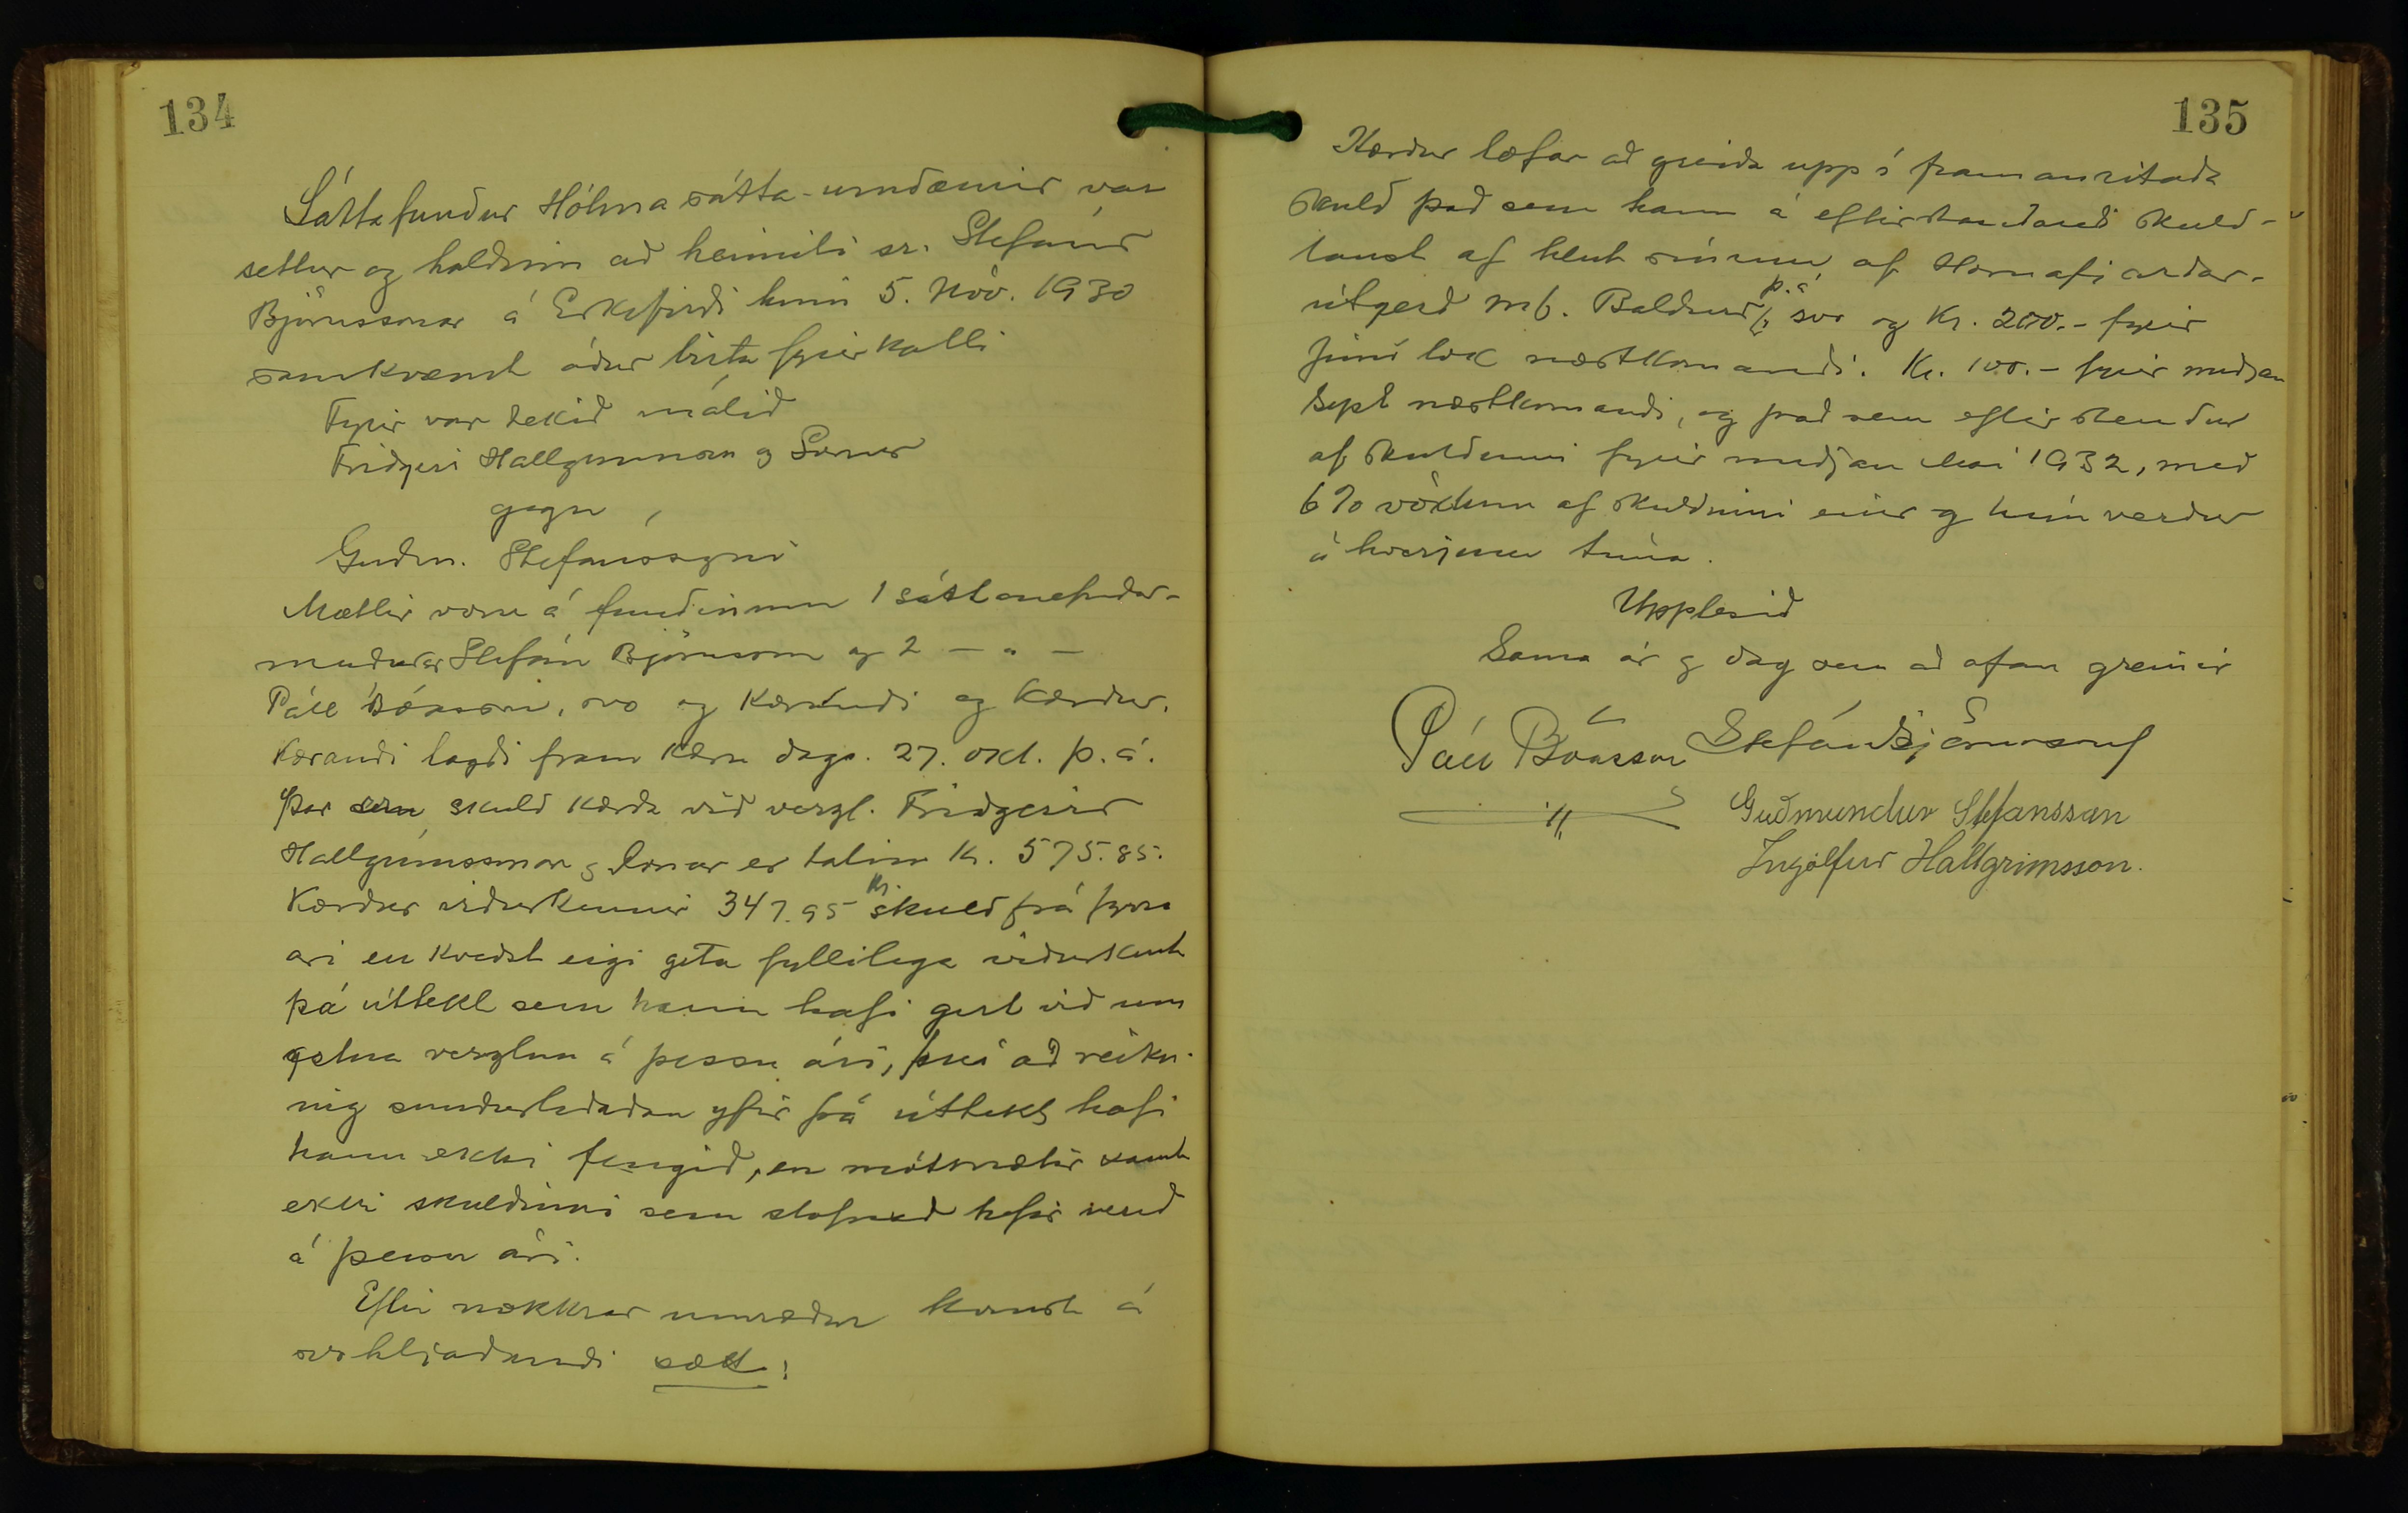 134
Sáttafundur Hólma sátta-umdæmis var
settur og haldinn að heimili sr. Stefáns
Björnssonar á Eskifirði hinn 5. Nóv. 1930
samkvæmt áður birtu fyrirkalli
Fyrir var tekið málið
Friðgeir Hallgrímsson og Sonur
gegn
Guðm. Stefánssyni
Mættir voru á fundinum 1 sáttanefndar-
maður sr Stefán Björnsson og 2 — " —
Páll Bóasson, svo og kærandi og kærður.
Kærandi lagði fram kæru dags. 27. okt. þ.á.
Þar sem skuld kærða við verzl. Friðgeirs
Hallgrímssonar & Sonar er talin Kr. 575.85.
Kærður viðurkennir 347.95 kr. skuld frá fyrra
ári en kveðst eigi geta fyllilega viðurkent
þá úttekt sem hann hafi gert við um
getna verzlun á þessu ári, því að reikn-
ing sundurliðaðan yfir þá úttekt hafi
hann ekki fengið, en mótmælir samt
ekki skuldinni sem stofnað hefir verið
á þessu ári.
Eftir nokkrar umræður komst á
svohljóðandi sætt:
135
Kærður lofar að greiða upp í framanritaða
skuld það sem hann á eftirstandandi skuld-
laust af hlut sínum af Hornafjarðar-
útgerð mb. Baldurs þ.á, svo og Kr. 200.- fyrir
júní lok næstkomandi. Kr. 100.- fyrir miðjan
sept næstkomandi, og það sem eftir stendur
af skuldinni fyrir miðjan maí 1932, með
6% vöxtum af skuldinni eins og hún verður
á hverjum tíma.
Upplesið
Sama ár & dag sem að ofan greinir
Páll Bóasson Stefán Björnsson
— " — Guðmundur Stefansson
Ingólfur Hallgrimsson.